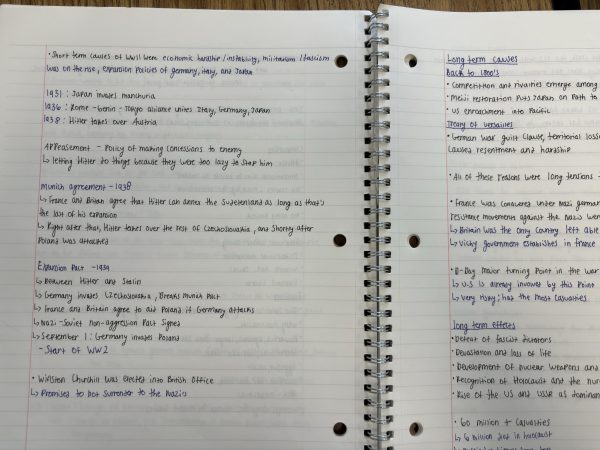 • Short term causes of WWII were economic hardship/instability, militarism/fascism
was on the rise, expansion policies of germany, italy, and Japan
1931: Japan invades manchuria
1936: Rome-Berlin-Tokyo alliance unites Italy, Germany, Japan
1938: Hitler takes over Austria
Appeasement - Policy of making concessions to enemy
↳ letting Hitler do things because they were too lazy to stop him
Munich agreement - 1938
↳ France and Britain agree that Hitler can annex the Sudetenland as long as that's
the last of his expansion
↳ Right after that, Hitler takes over the rest of Czechoslovakia, and shortly after
Poland was attacked
Expansion Pact - 1939
↳ Between Hitler and Stalin
↳ Germany invades Czechoslovakia, Breaks Munich Pact
↳ France and Britain agree to aid Poland if Germany attacks
↳ Nazi-Soviet Non-aggression Pact Signed
↳ September 1: Germany invades Poland
- Start of WW2
• Winston Churchill was elected into British Office
↳ Promises to not surrender to the Nazis
Long term causes
Back to 1800's
• Competition and rivalries emerge among
• Meiji restoration puts Japan on Path to
• US encroachment into Pacific
Treaty of versailles
• German war guilt clause, territorial
causes resentment and hardship
• All of these reasons were long tensions
• France was conquered under Nazi
resistance movements against the Nazis
↳ Britain was the only country left able
↳ Vichy government establishes in France
• D-Day major turning point in the war
↳ U.S is already involved by this Point
↳ very risky; had the most casualties
long term effects
• Defeat of fascist dictators
• Devastation and loss of life
• Development of nuclear weapons and
• Recognition of Holocaust and the
• Rise of the US and USSR as dominant
• 60 million + casualties
↳ 6 million in holocaust